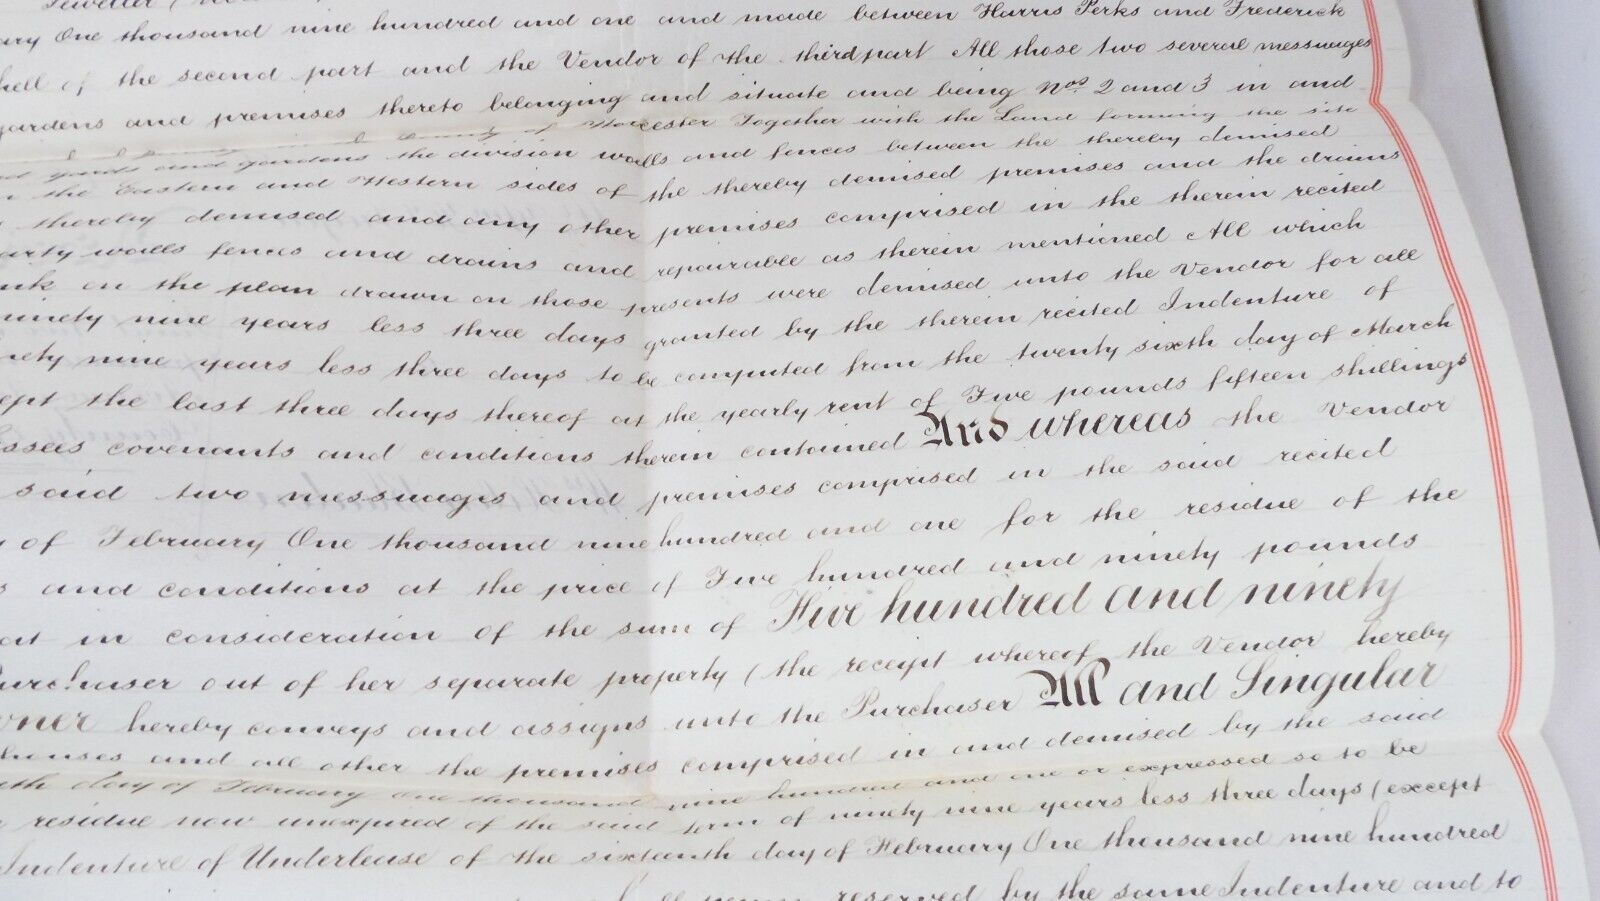 Jeweller
ary One thousand nine hundred and one and made between Harris Perks and Frederick
hell of the second part and the Vendor of the third part All those two several messuages
gardens and premises thereto belonging and situate and being Nos. 2 and 3 in and
County of Worcester Together with the Land forming the site
yards and gardens the division walls and fences between the thereby demised
n the Eastern and Western sides of the thereby demised premises and the drains
thereby demised and any other premises comprised in the therein recited
arty walls fences and drains and repairable as therein mentioned All which
nk on the plan drawn on those presents were demised unto the Vendor for all
ninety nine years less three days granted by the therein recited Indenture of
nety nine years less three days to be computed from the twenty sixth day of March
ept the last three days thereof at the yearly rent of Five pounds fifteen shillings
essees covenants and conditions therein contained And whereas the Vendor
said two messuages and premises comprised in the said recited
y of February One thousand nine hundred and one for the residue of the
s and conditions at the price of Five hundred and ninety pounds
at in consideration of the sum of Five hundred and ninety
Purchaser out of her separate property (the receipt whereof the Vendor hereby
wner hereby conveys and assigns unto the Purchaser All and Singular
houses and all other the premises comprised in and demised by the said
nth day of February one thousand nine hundred and one or expressed so to be
residue now unexpired of the said term of ninety nine years less three days (except
Indenture of Underlease of the sixteenth day of February One thousand nine hundred
reserved by the same Indenture and to